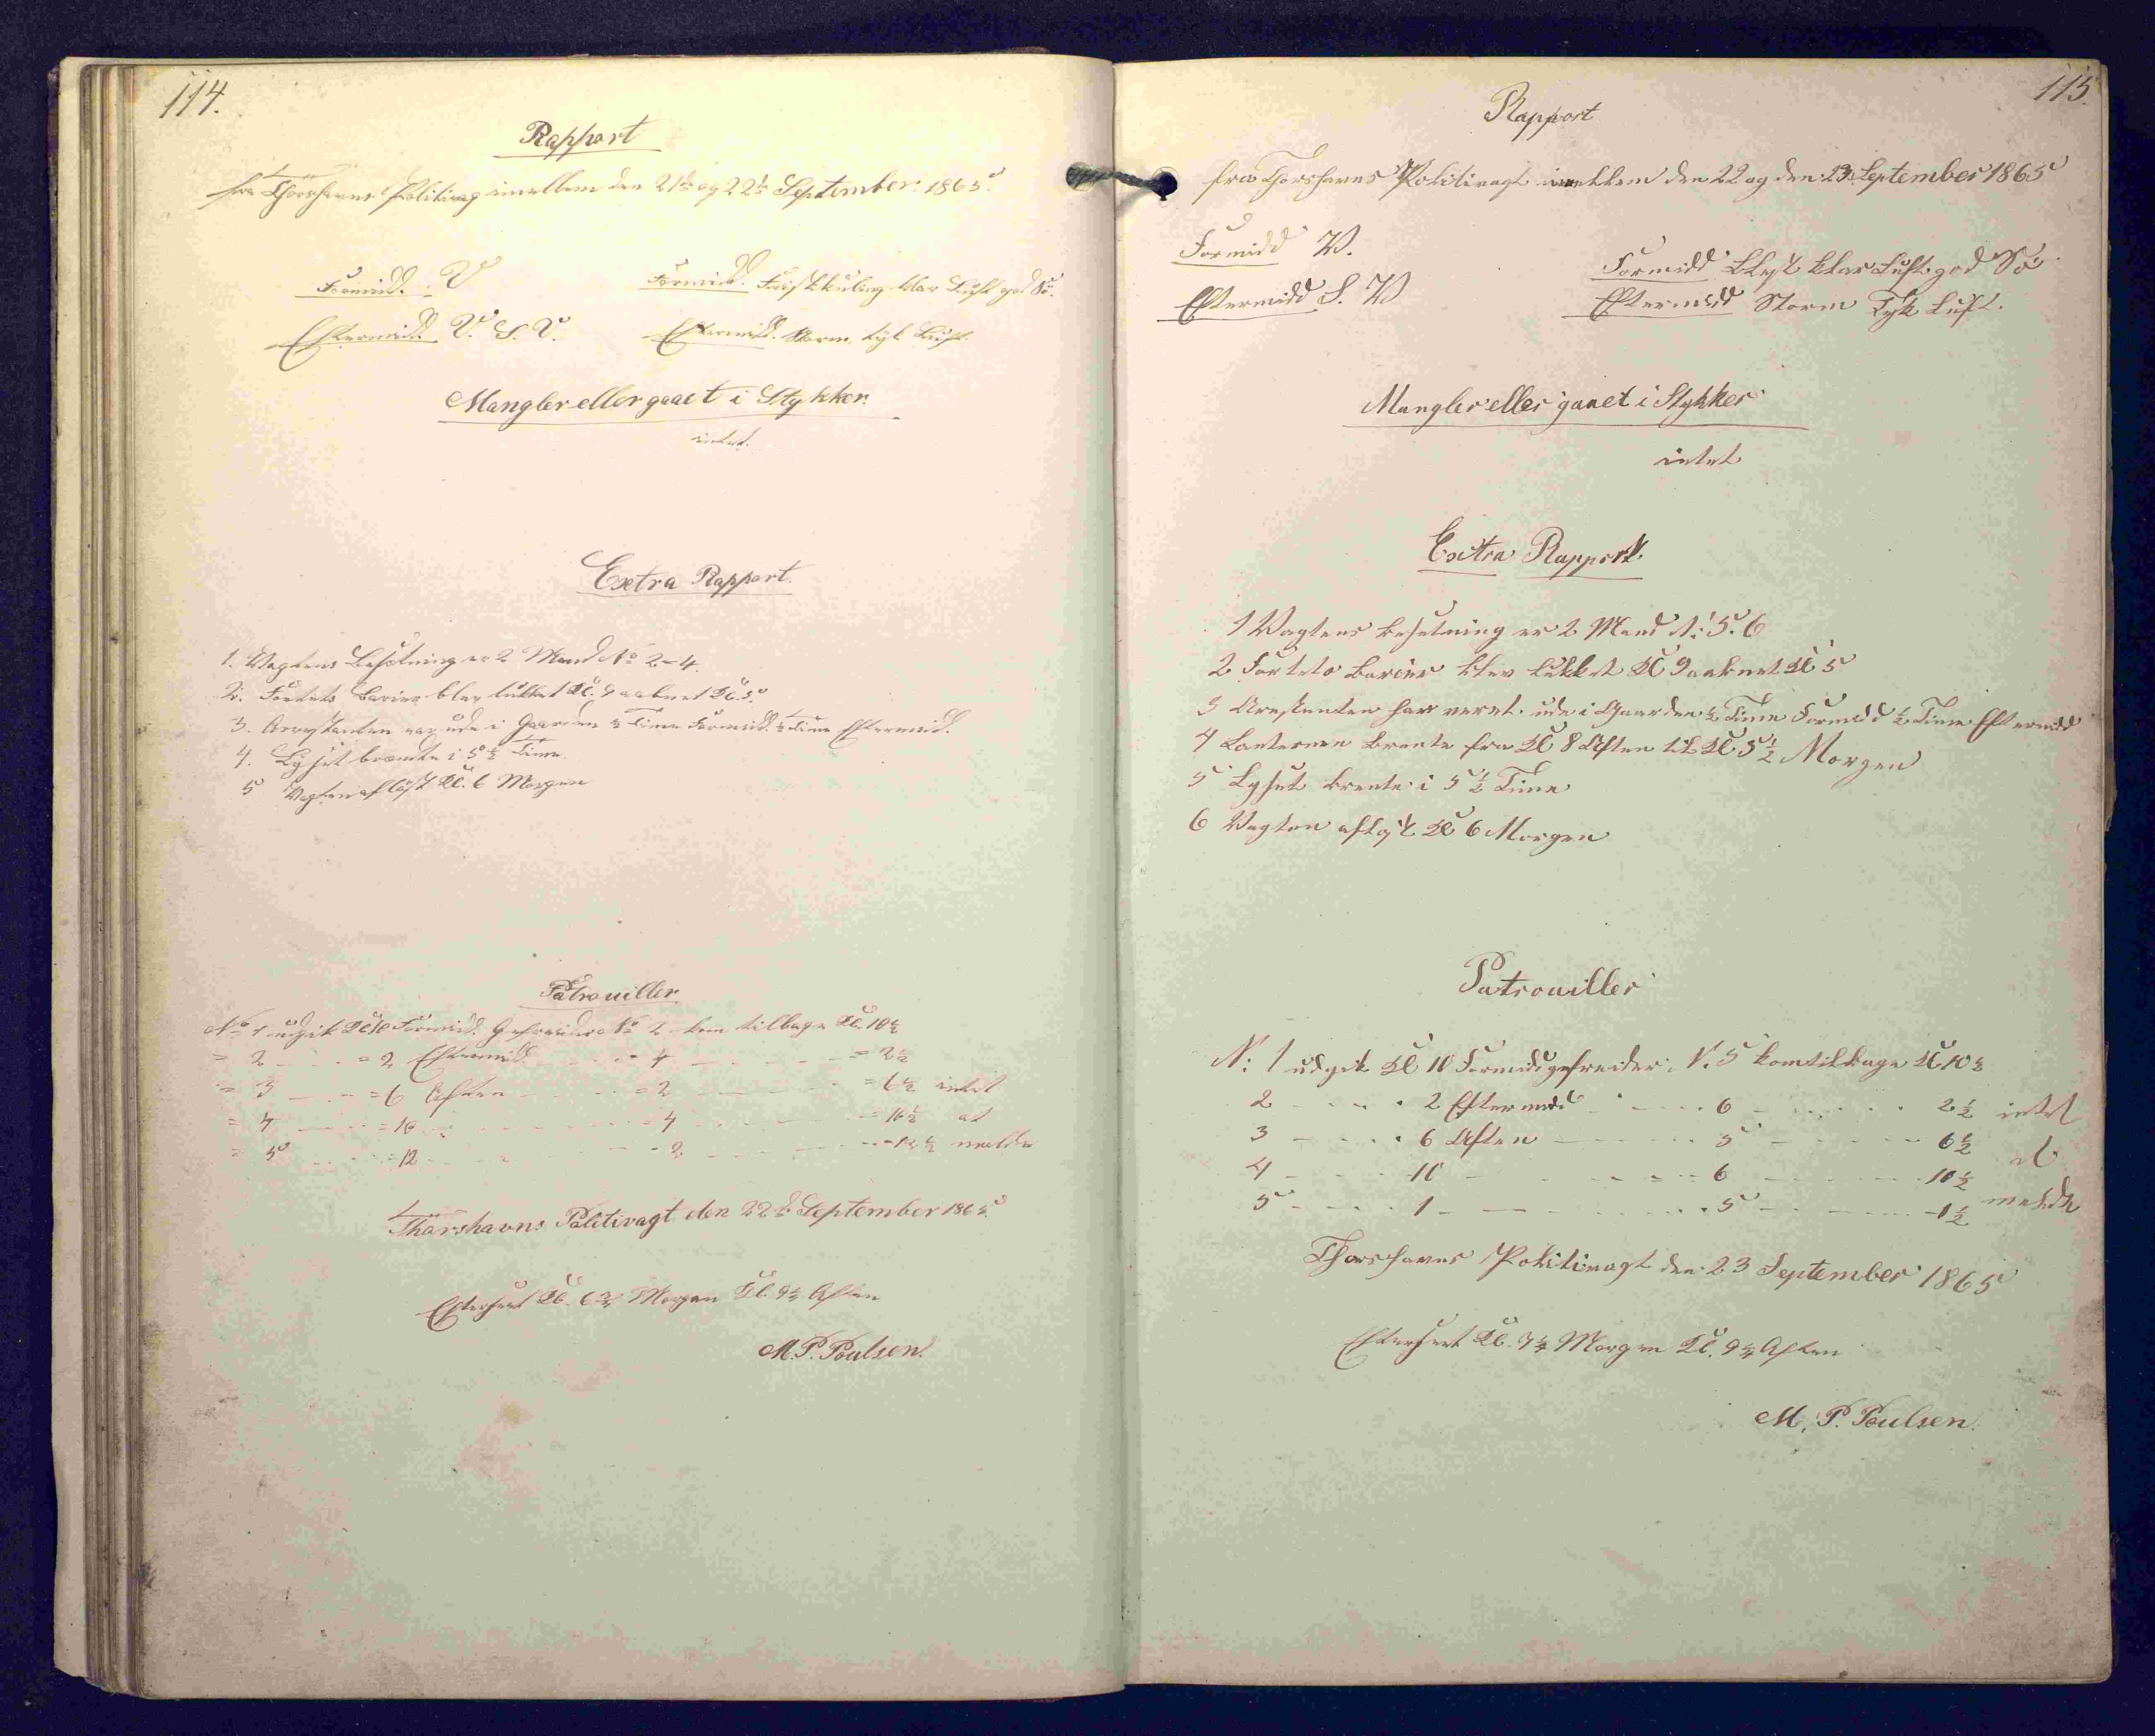 114.
Rapport
fra Thorshavns Politivagt imellem den 21de og 22de September 1865.
Formidd. V
Formidd. Friskkuling klar Luft god Sö.
Eftermidd. V. S. V.
Eftermidd. Storm tyk Luft.
Mangler eller gaaet i Stykker.
intet.
Exstra Rapport.
1. Vagtens Besætning er 2 Mand No 2-4.
2. Fortets Barier blev lukket Kl. 9 aabnet Kl. 5.
3. Arrestanten var ude i Gaarden ½ Time Formidd. ½ Time Eftermidd.
4. Lyset brændte i 5½ Time.
5 Vagten aflöst Kl. 6 Morgen
Patrouiller
No 1 udgik Kl 10 Formidd. Gefreider No 2 kom tilbage Kl. 10½
= 2 - - = 2 Eftermidd - - = 4 - - - = 2½
= 3 - - = 6 Aften - - = 2 - - - = 6½ intet
= 4 - - = 10 - - - = 4 - - - = 10½ at
= 5 - - = 12 - - - - 2 - - - - 12½ melde
Thorshavns Politivagt den 22de September 1865.
Efterseet Kl. 6¾ Morgen Kl. 9½ Aften
M. P. Poulsen.
115.
Rapport
fra Thorshavns Politivagt imellem den 22 og den 23 September 1865
Formidd V.
Formidd Blest klar Luft god Sö
Eftermidd S. V
Eftermidd Storm Tyk Luft.
Mangler eller gaaet i Stykker
intet
Exstra Rapport
1 Vagtens besetning er 2 Mand N: 5. 6
2 Fortets Barier blev lukket Kl 9 aabnet Kl 5
3 Arestenten har veret ude i Gaarden ½ Time Formidd ½ Time Eftermidd
4 Lanternen brente fra Kl 8 Aften til Kl 5½ Morgen
5 Lyset brente i 5½ Time
6 Vagten afløst Kl 6 Morgen
Patrouiller
N: 1 udgik Kl 10 Formidd gefreider N. 5 kom tilbage Kl 10½
2 - - - 2 Eftermidd - - - 6 - - - 2½ intet
3 - - - 6 Aften - - - 5 - - - 6½ at
4 - - - 10 - - - 6 - - - 10½
5 - - - 1 - - - 5 - - - 1½ melde
Thorshavns Politivagt den 23 September 1865
Efterseet Kl. 7¼ Morgen Kl. 9¼ Aften
M. P. Poulsen.